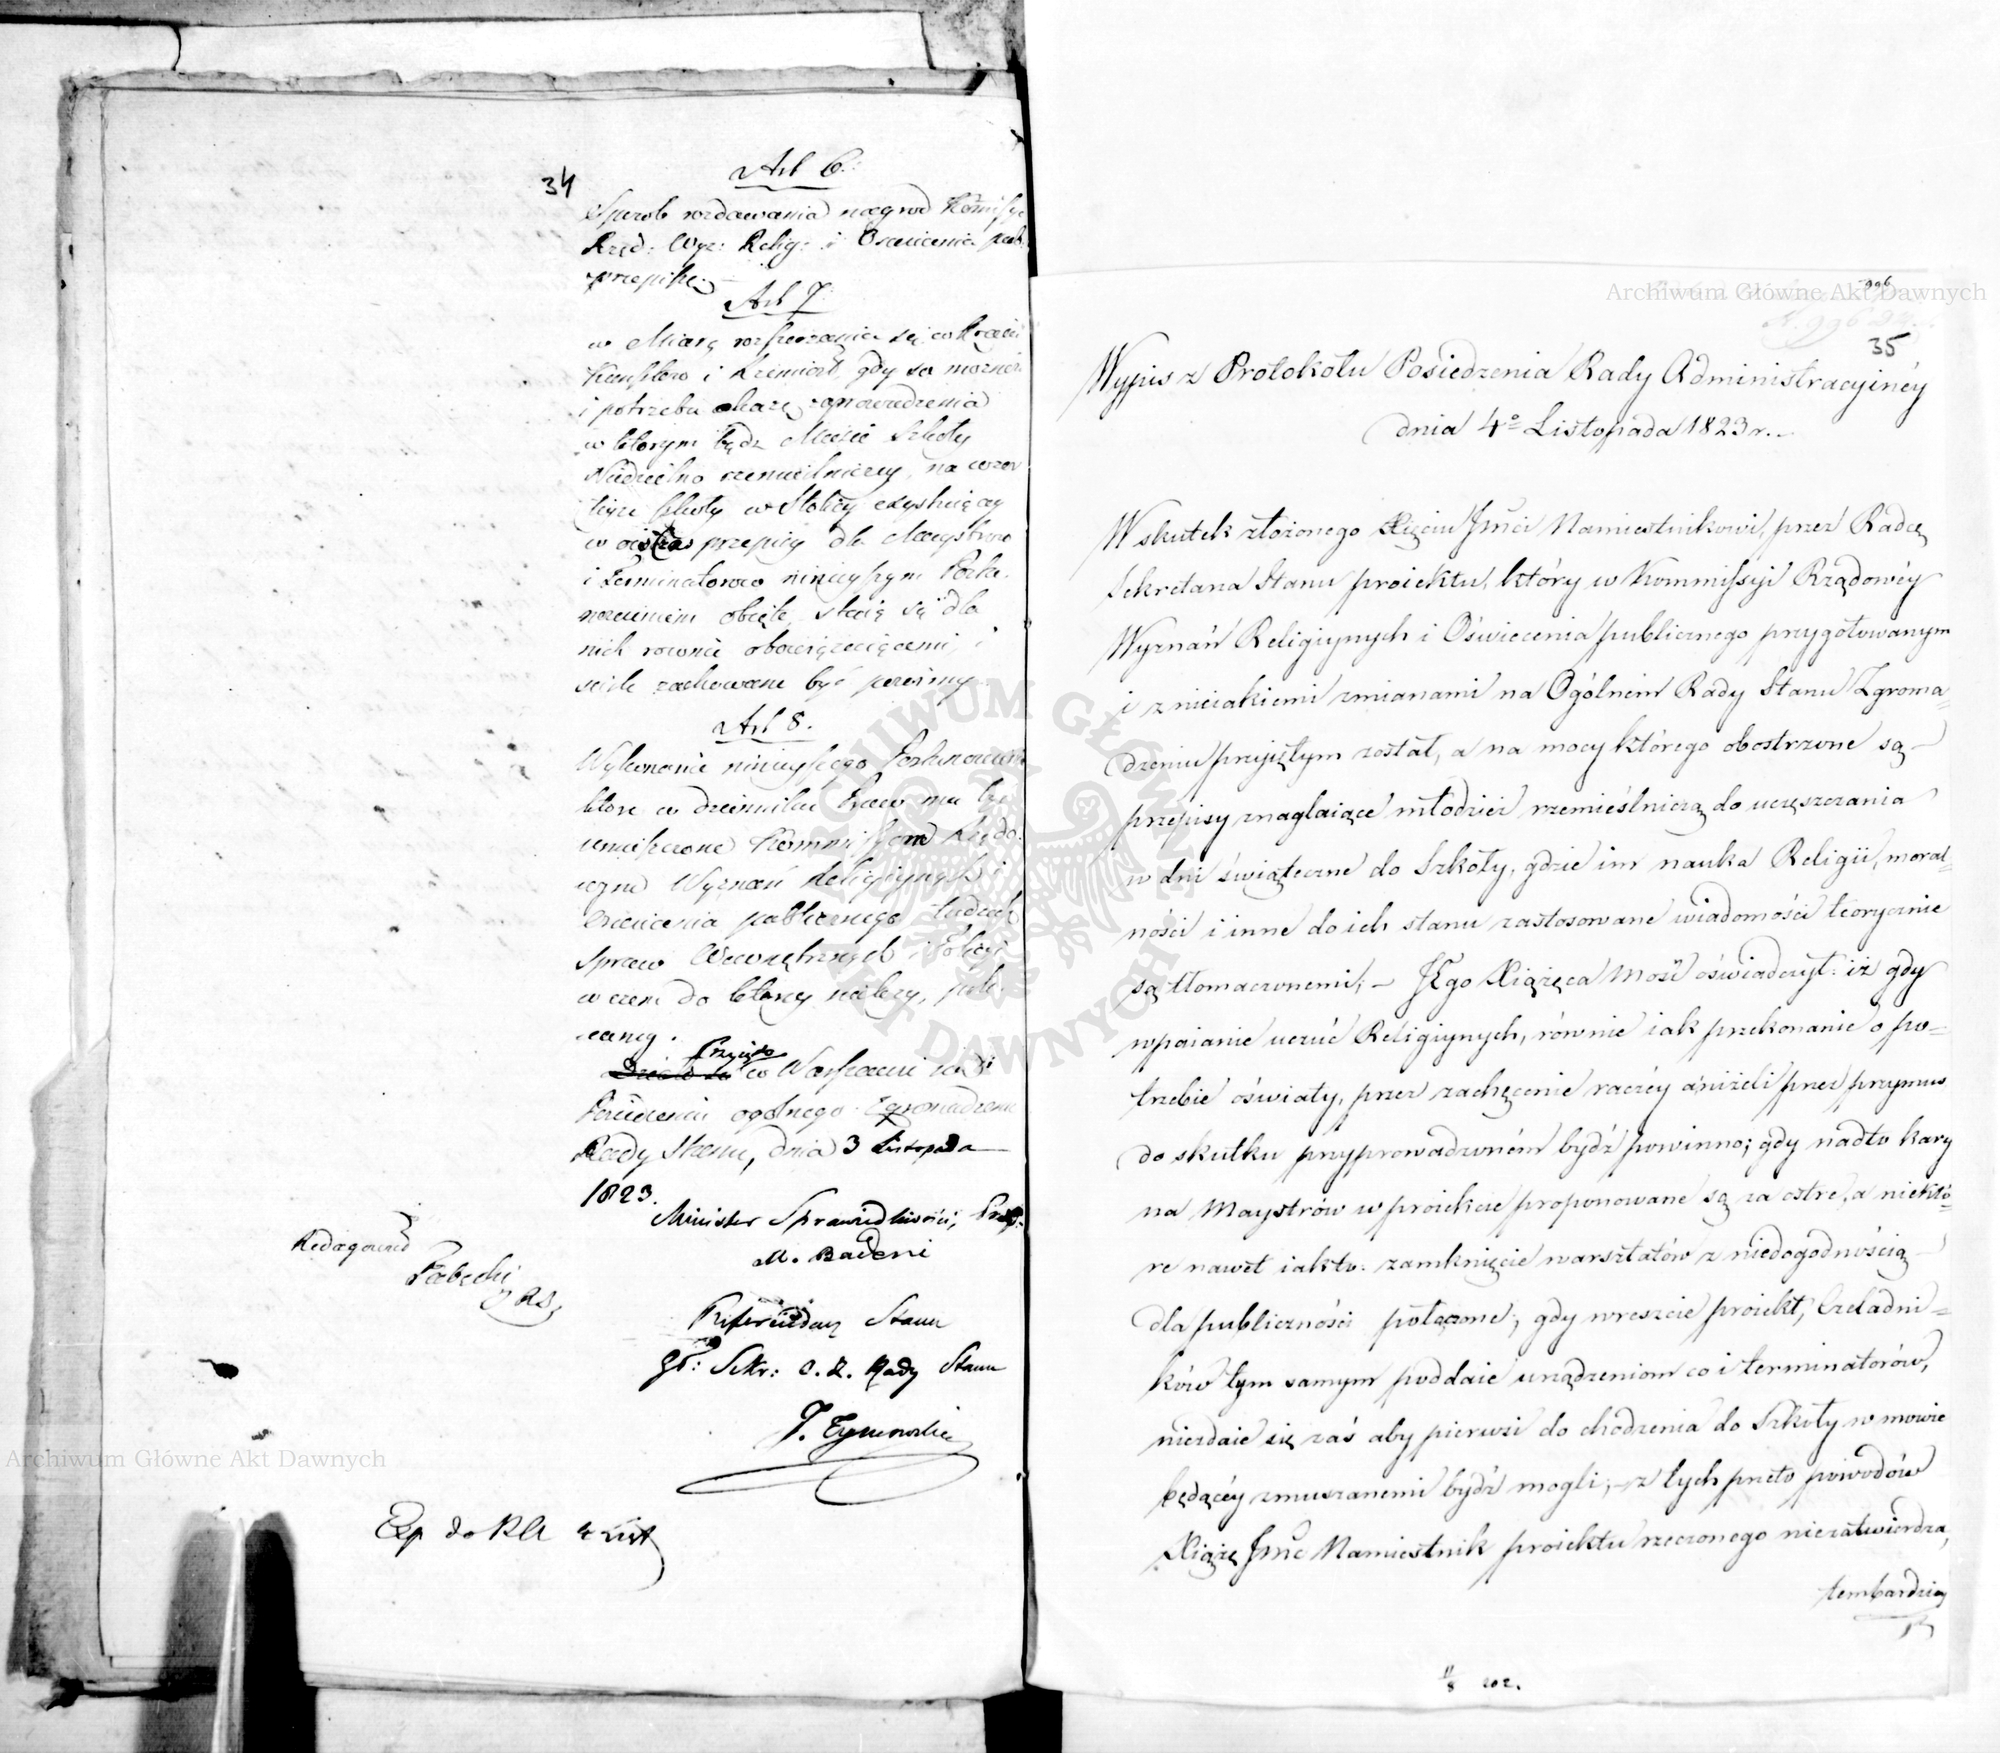 34
Art 6.
Sposob rozdawania nagrod Kommissya
Rząd: Wyz: Relig: i Oswiecenia pub:
przepisze.
Art 7.
w Miarę rozszerzania się w Kraiu
Kunsztow i Rzemiosł, gdy sa możność
i potrzeba okażą zaprowadzenia
w ktorym bądz Mieście szkoły
Niedzielno rzemieślniczey, na wzor
teyże szkoły w Stolicy exystuiącey
przepisy dla Maystrow
i Terminatorow ninieyszym Posta-
nowieniem obięte, staią się dla
nich rownie obowiązuiącemi, i
scisle zachowane być powinny.
Art 8.
Wykonanie ninieyszego Postanowienia
ktore w dzienniku Praw ma być
umieszczone Kommissyom Rządo-
wym Wyznań Religiynych i
Oswiecenia publicznego tudzież
Spraw Wewnętrznych i Policyi
w czem do ktorey należy, pole-
camy.
Przyięto
Działo się w Warszawie na
Posiedzeniu ogolnego Zgromadzenia
Rady Stanu, dnia 3 Listopada
1823.
Minister Sprawiedliwości, Prez:
M. Badeni
Redagował
Referendarz Stanu
Sekr: O. Z. Rady Stanu
J. Tymowski
Exp do RA 4 List
996
35
Wypis z Protokołu Posiedzenia Rady Administracyinéy
dnia 4º Listopada 1823 r.
W skutek złożonego Xięciu Jmci Namiestnikowi, przez Radcę
Sekretarza Stanu proiektu, który w Kommissyi Rządowéy
Wyznań Religiynych i Oświecenia publicznego przygotowanym
i z nieiakiemi zmianami na Ogólnem Rady Stanu Zgroma=
dzeniu przyiętym został, a na mocy którego obostrzone są
przepisy znaglaiące młodzież rzemieślniczą do uczęszczania
w dni świąteczne do Szkoły, gdzie im nauka Religii, moral=
ności i inne do ich stanu zastosowane wiadomości teorycznie
są tłomaczonemi; – JEgo Xiążęca Mość oświadczył: iż gdy
wpaianie uczuć Religiynych, równie iak przekonanie o po=
trzebie oświaty, przez zachęcenie raczéy aniżeli przez przymus
do skutku przyprowadzoném bydź powinno; gdy nadto kary
na Maystrów w proiekcie proponowane są za ostre, a niektó=
re nawet iakto: zamknięcie warsztatów z niedogodnością
dla publiczności połączone; gdy wreszcie proiekt, Czeladni=
ków tym samym poddaie urządzeniom co i terminatorów,
niezdaie się zaś aby pierwsi do chodzenia do Szkoły w mowie
będącéy zmuszanemi bydź mogli; – z tych przeto powodów
Xiążę Jmć Namiestnik proiektu rzeczonego niezatwierdza,
tembardziéy
11/8 202.
Archiwum Główne Akt Dawnych
Archiwum Główne Akt Dawnych
ARCHIWUM GŁÓWNE AKT DAWNYCH